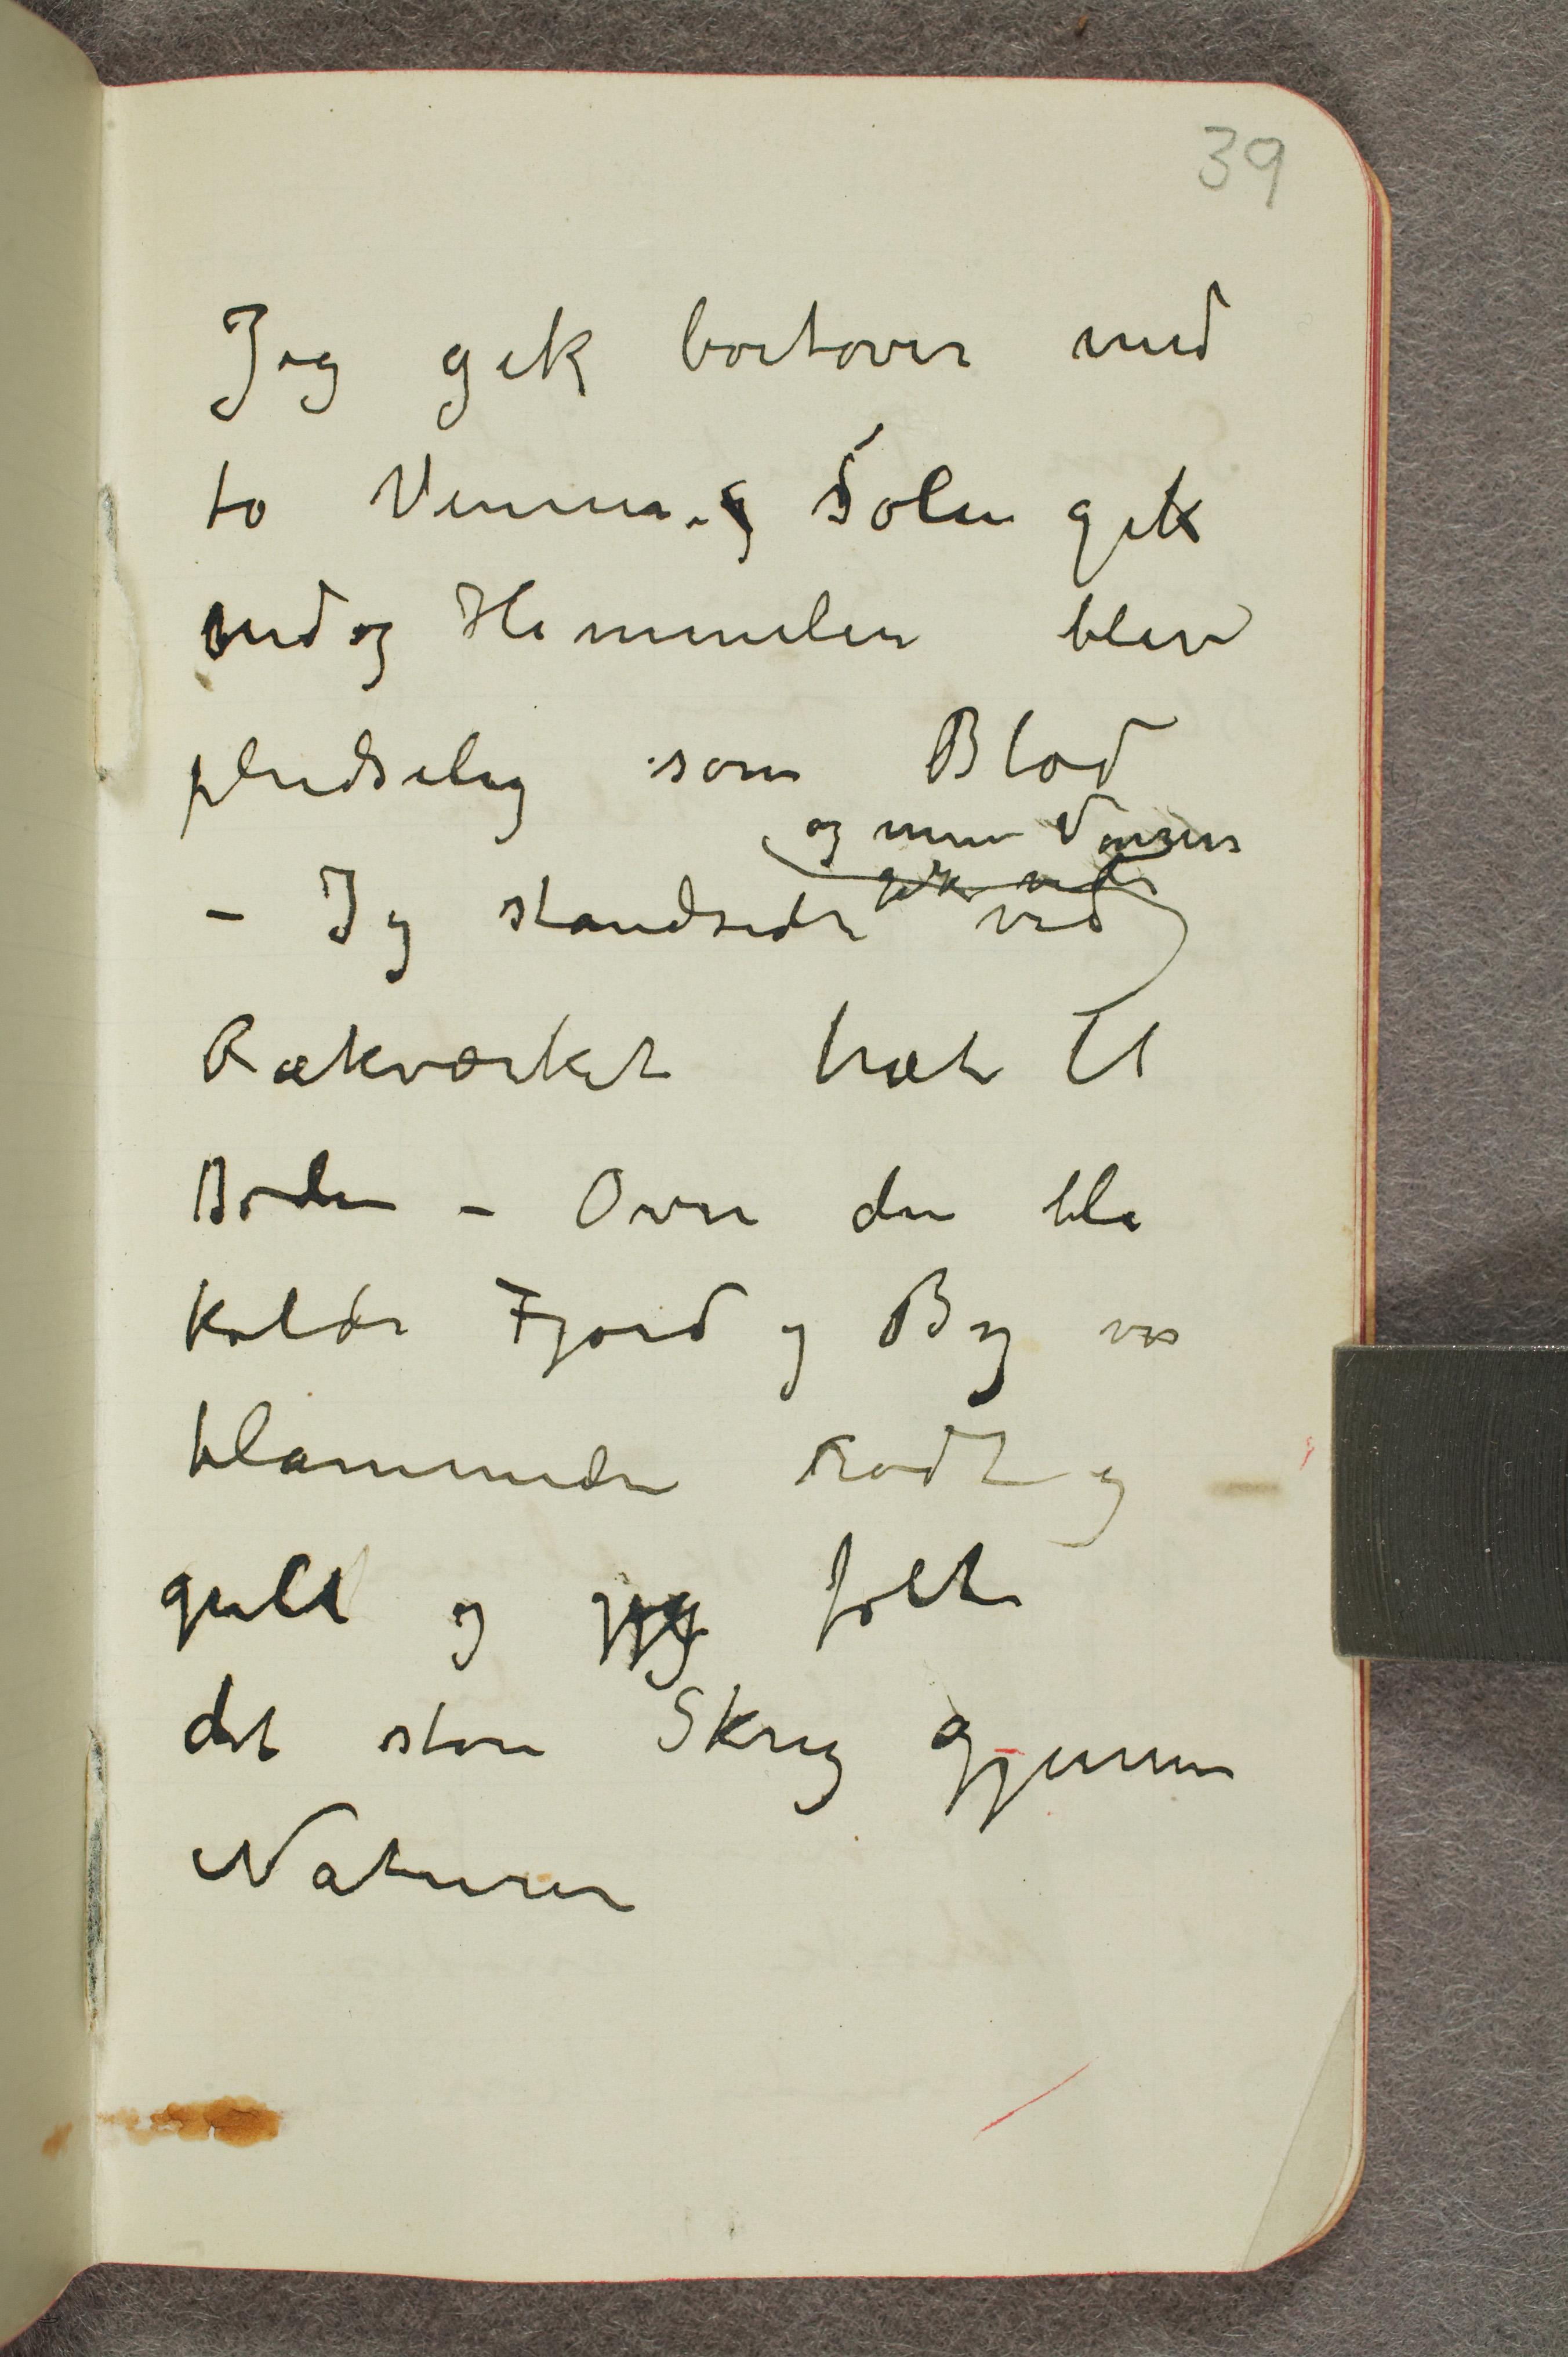 39
Jeg gik bortover med
to Venner. og Solen gik
ned og Himmelen blev
pludselig som Blod
og mine Venner
gik vidr
– Jeg standsede ved
Rækværket træt til
Døden – Over den bla
kolde Fjord og By var
flammende rødt og
gult og jeg følte
det store Skrig gjennem
Naturen